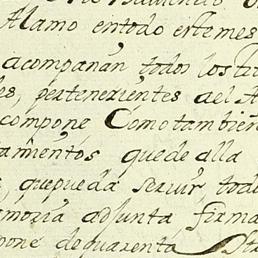 Alamo entodo estemes
acompañan todos los
les, pertenezientes ael A
compone Comotambien
amentos quedealla
quepueda servir, tod
moria adjunta firma
pone dequarenta